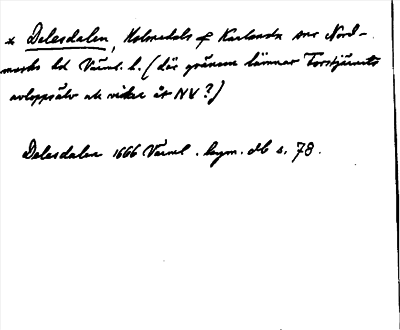 * Delesdalen, Holmedals sn Karlanda snr Nord-
marks hd Värml. l. (där gränsen lämnar Torstjärnets
avloppsälv och viker åt NV?)
Delesdalen 1666 Värml. lagm. db s. 78.